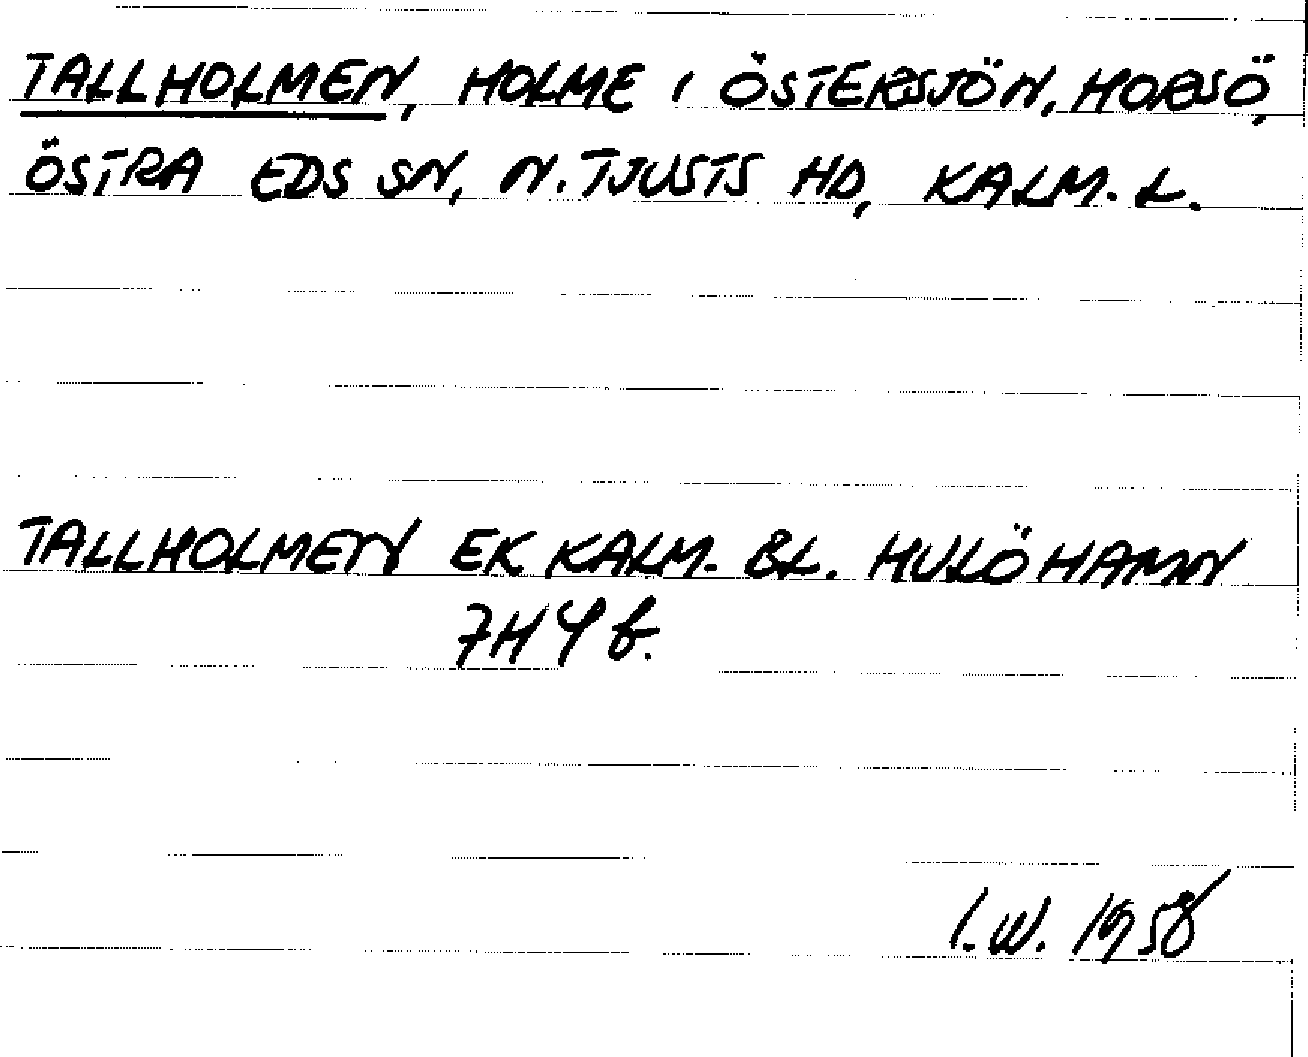 TALLHOLMEN, HOLME I ÖSTERSJÖN, HORSÖ,
ÖSTRA EDS SN, N. TJUSTS HD, KALM. L.
TALLHOLMEN EK KALM. BL. HULÖHAMN
7H4b.
I.W. 1958